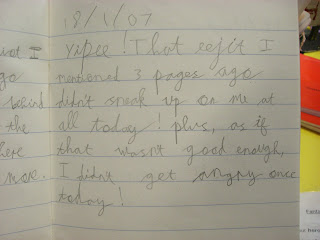 18/1/07
yipee! That eejit I
mentioned 3 pages ago
didn't sneak up on me at
all today! plus, as if
that wasn't good enough,
I didn't get angry once
today!
I
go
behind
the
here
more.